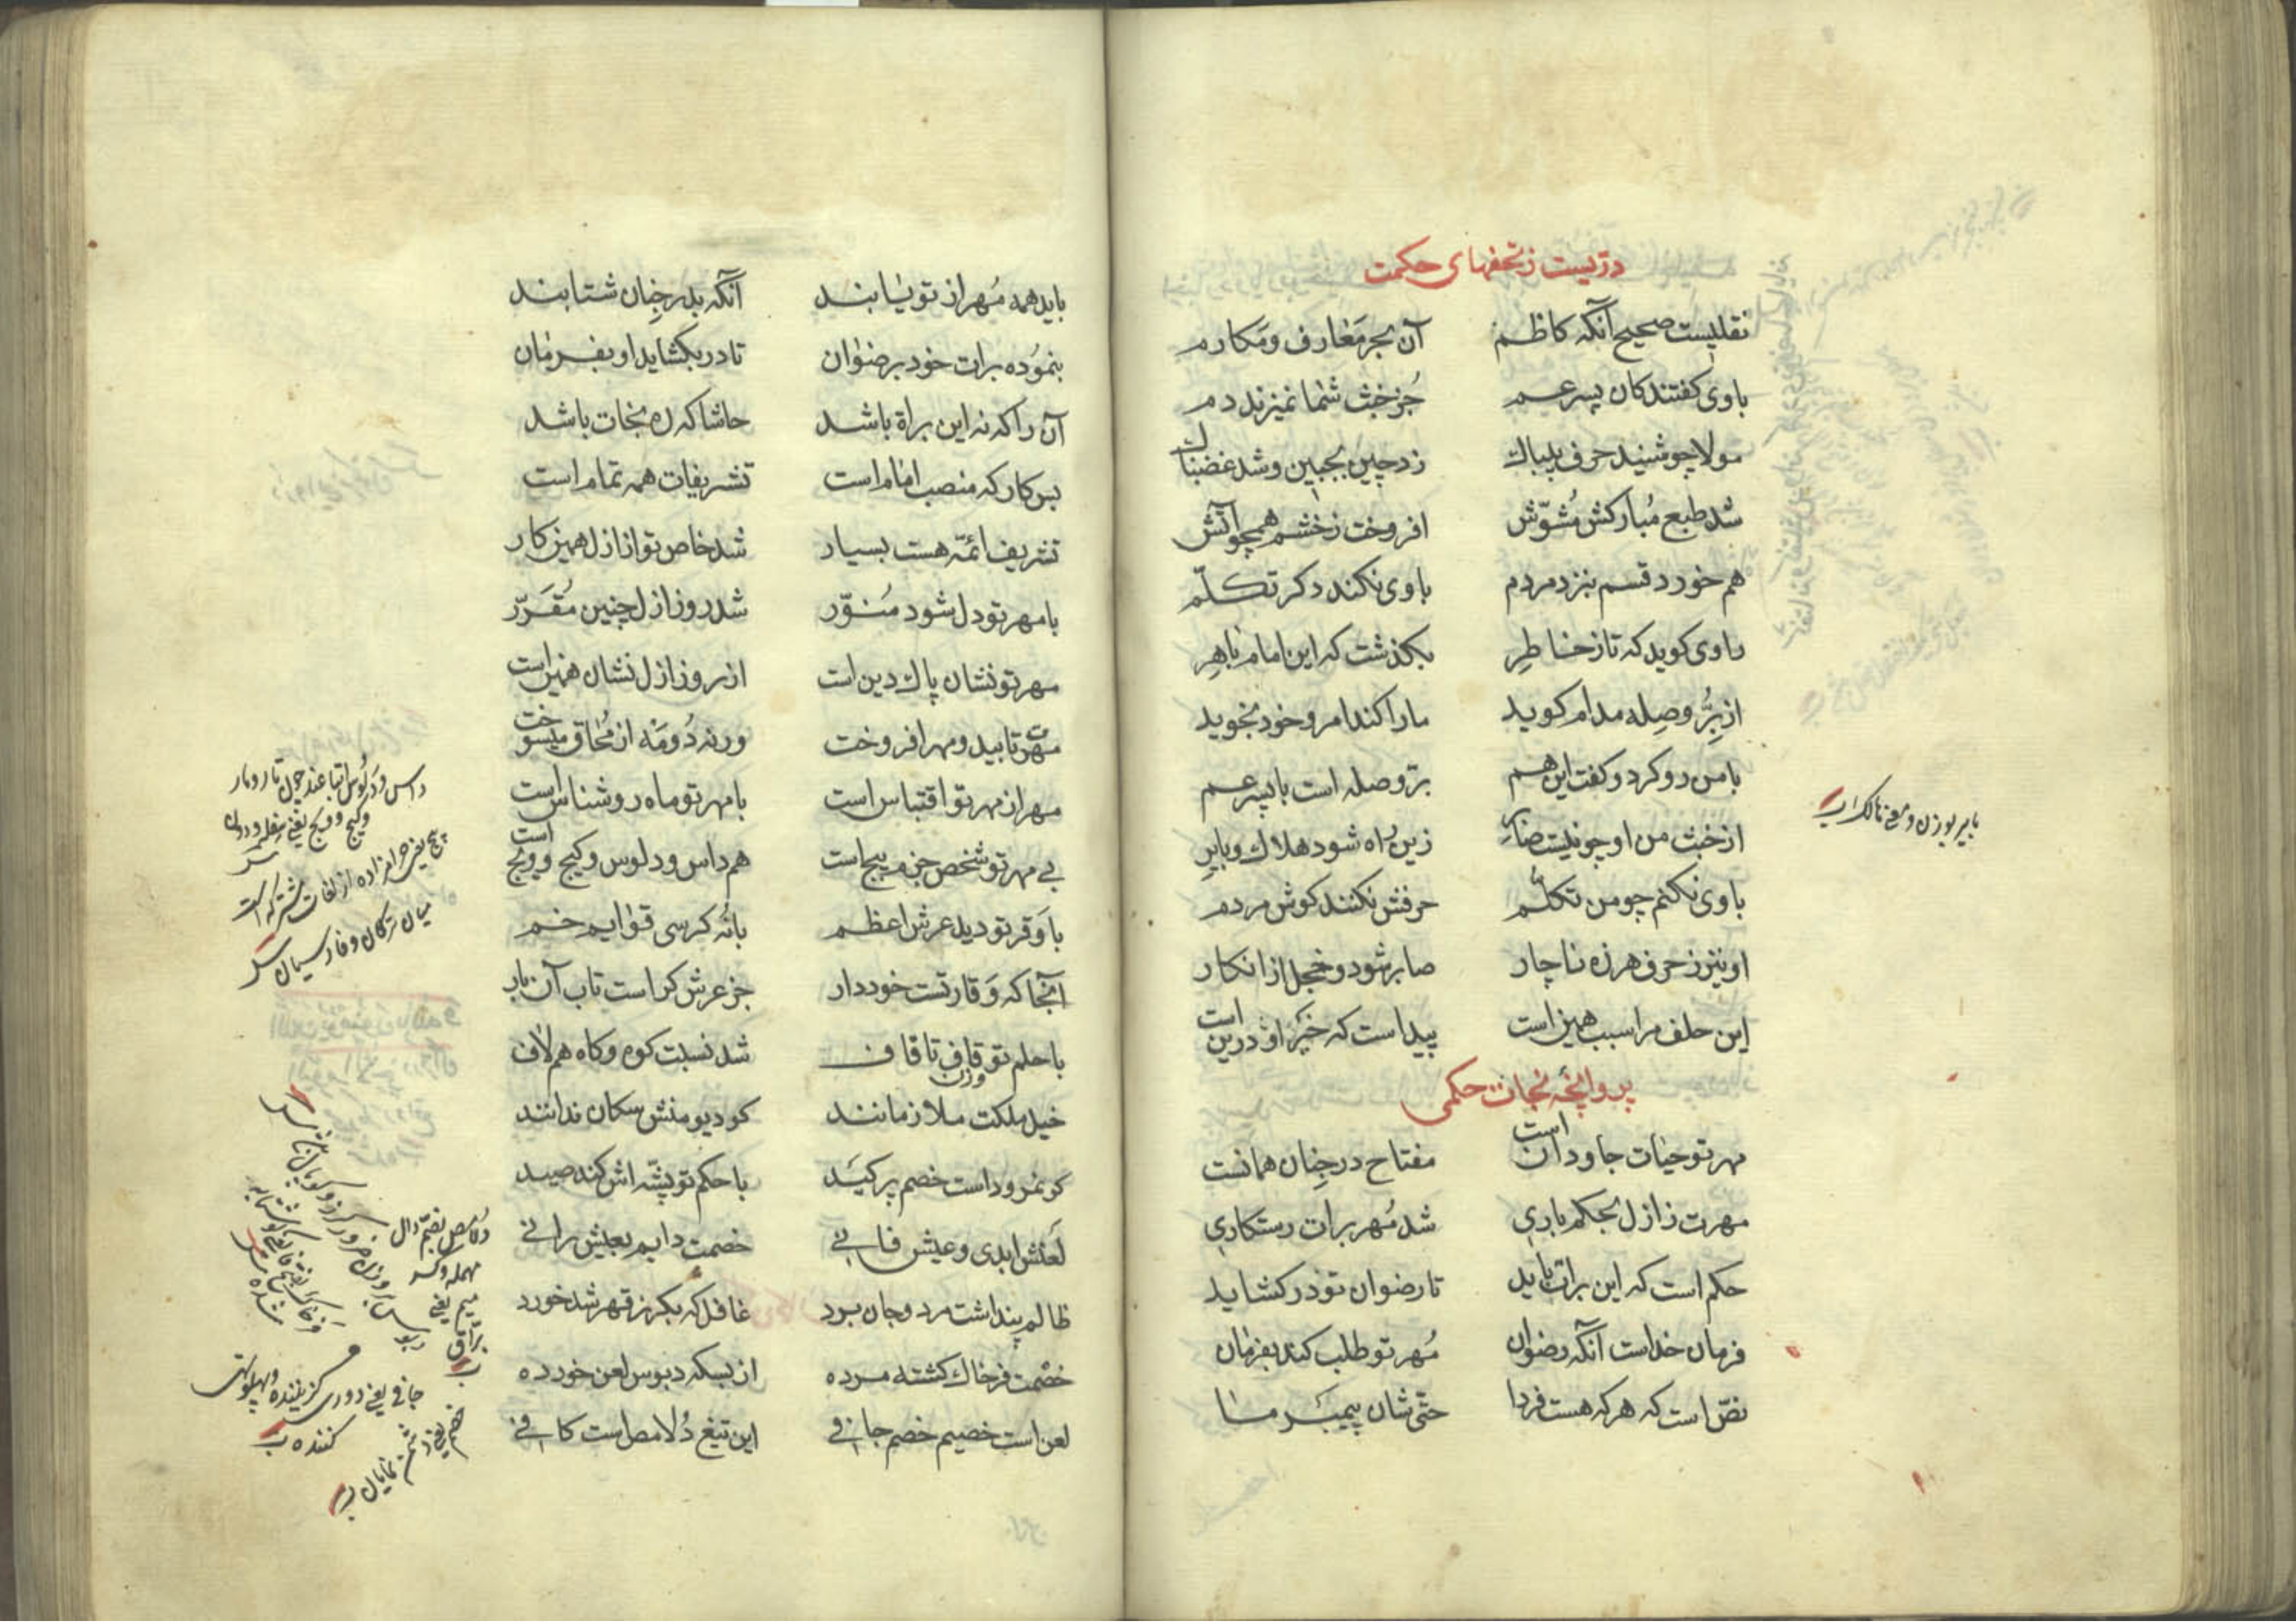 دریست ز تحفهای حکمت
نقلیست صحیح آنکه کاظم آن بحر معارف و مکارم
با وی کفتند کان پسر عم جز خبث شما نمیزند دم
مولا چو شنید حرف بیباک زد چین بجبین و شد غضبناک
شد طبع مبارکش مشوّش افروخت ز خشم همچو آتش
هم خورد قسم بنزد مردم با وی نکند دکر تکلّم
راوی کوید که تا ز خاطر بکذشت که این امام باهر
از برّ و صله مدام کوید ما را کند امر و خود نجوید
با من رو کرد و کفت این هم برّ و صله است با پسر عم
از خبث من او چو نیست صابر زین راه شود هلاک و بایر
با وی نکنم چو من تکلّم حرفش نکنند کوش مردم
او نیز ز حرف هرزه ناچار صابر شود و خجل از انکار
این حلف مرا سبب همین است پیداست که خیر او درین است
پروانچهٔ نجات حکمی
مهر تو حیات جاودان است مفتاح در جنان همانست
مهرت ز ازل بحکم باری شد مُهر برات رستکاری
حکم است که این برات باید تا رضوان تو در کشاید
فرمان خداست آنکه رضوان مُهر تو طلب کند بفرمان
نصّ است که هر که هست فردا حتّی شان پیمبر ما
بایر بوزن و معنی هالک است
باید همه مُهر از تو یابند آنکه بدر جنان شتابند
بنموده برات خود برضوان تا در بکشاید او بفرمان
آن را که نه این براة باشد حاشا که ره نجات باشد
بس کار که منصب امام است تشریفات همه تمام است
تشریف ائمّه هست بسیار شد خاص تو از ازل همین کار
با مهر تو دل شود منوّر شد روز ازل چنین مقرّر
مهر تو نشان پاک دین است از روز ازل نشان همین است
مهرت تابید و مهر افروخت ورنه دو مه از محاق میسوخت
مهر از مهر تو اقتباس است با مهر تو ماه روشناس است
بی مهر تو شخص جز م پیچ است هم داس و دلوس و کیج و ویج است
با وقر تو دید عرش اعظم بانه کرسی قوایم خم
آنجا که وقار تست خوددار جز عرش کراست تاب آن بار
با حلم تو قاف تا قاف وزن شد نسبت کوه و کاه هم لاف
خیل ملکت ملازمانند کو دیو منش سکان ندانند
کر نمرود است خصم پر کید با حکم تو پشّه اش کند صید
لعنش ابدی و عیش فانی خصمت دایم بعیش رانی
ظالم پنداشت مرد و جان برد غافل که بکرز قهر شد خورد
خصمت فرخاک کشته مرده از بسکه دبوس لعن خورده
لعن است خصیم خصم جافی این تیغ دلامص است کافی
داس و دلوس اتباعند چون تار و مار
و کیج و ویج یعنی سفله و دون
پیج یعنی حرامزاده از لغات مشترکه است
میان ترکان و فارسیان
دلامص بضم دال
مهمله و کسر
میم یعنی
برّاق
جافی یعنی دوری کزیننده و پهلو تهی
کننده
خصیم یعنی دشمن نمایان